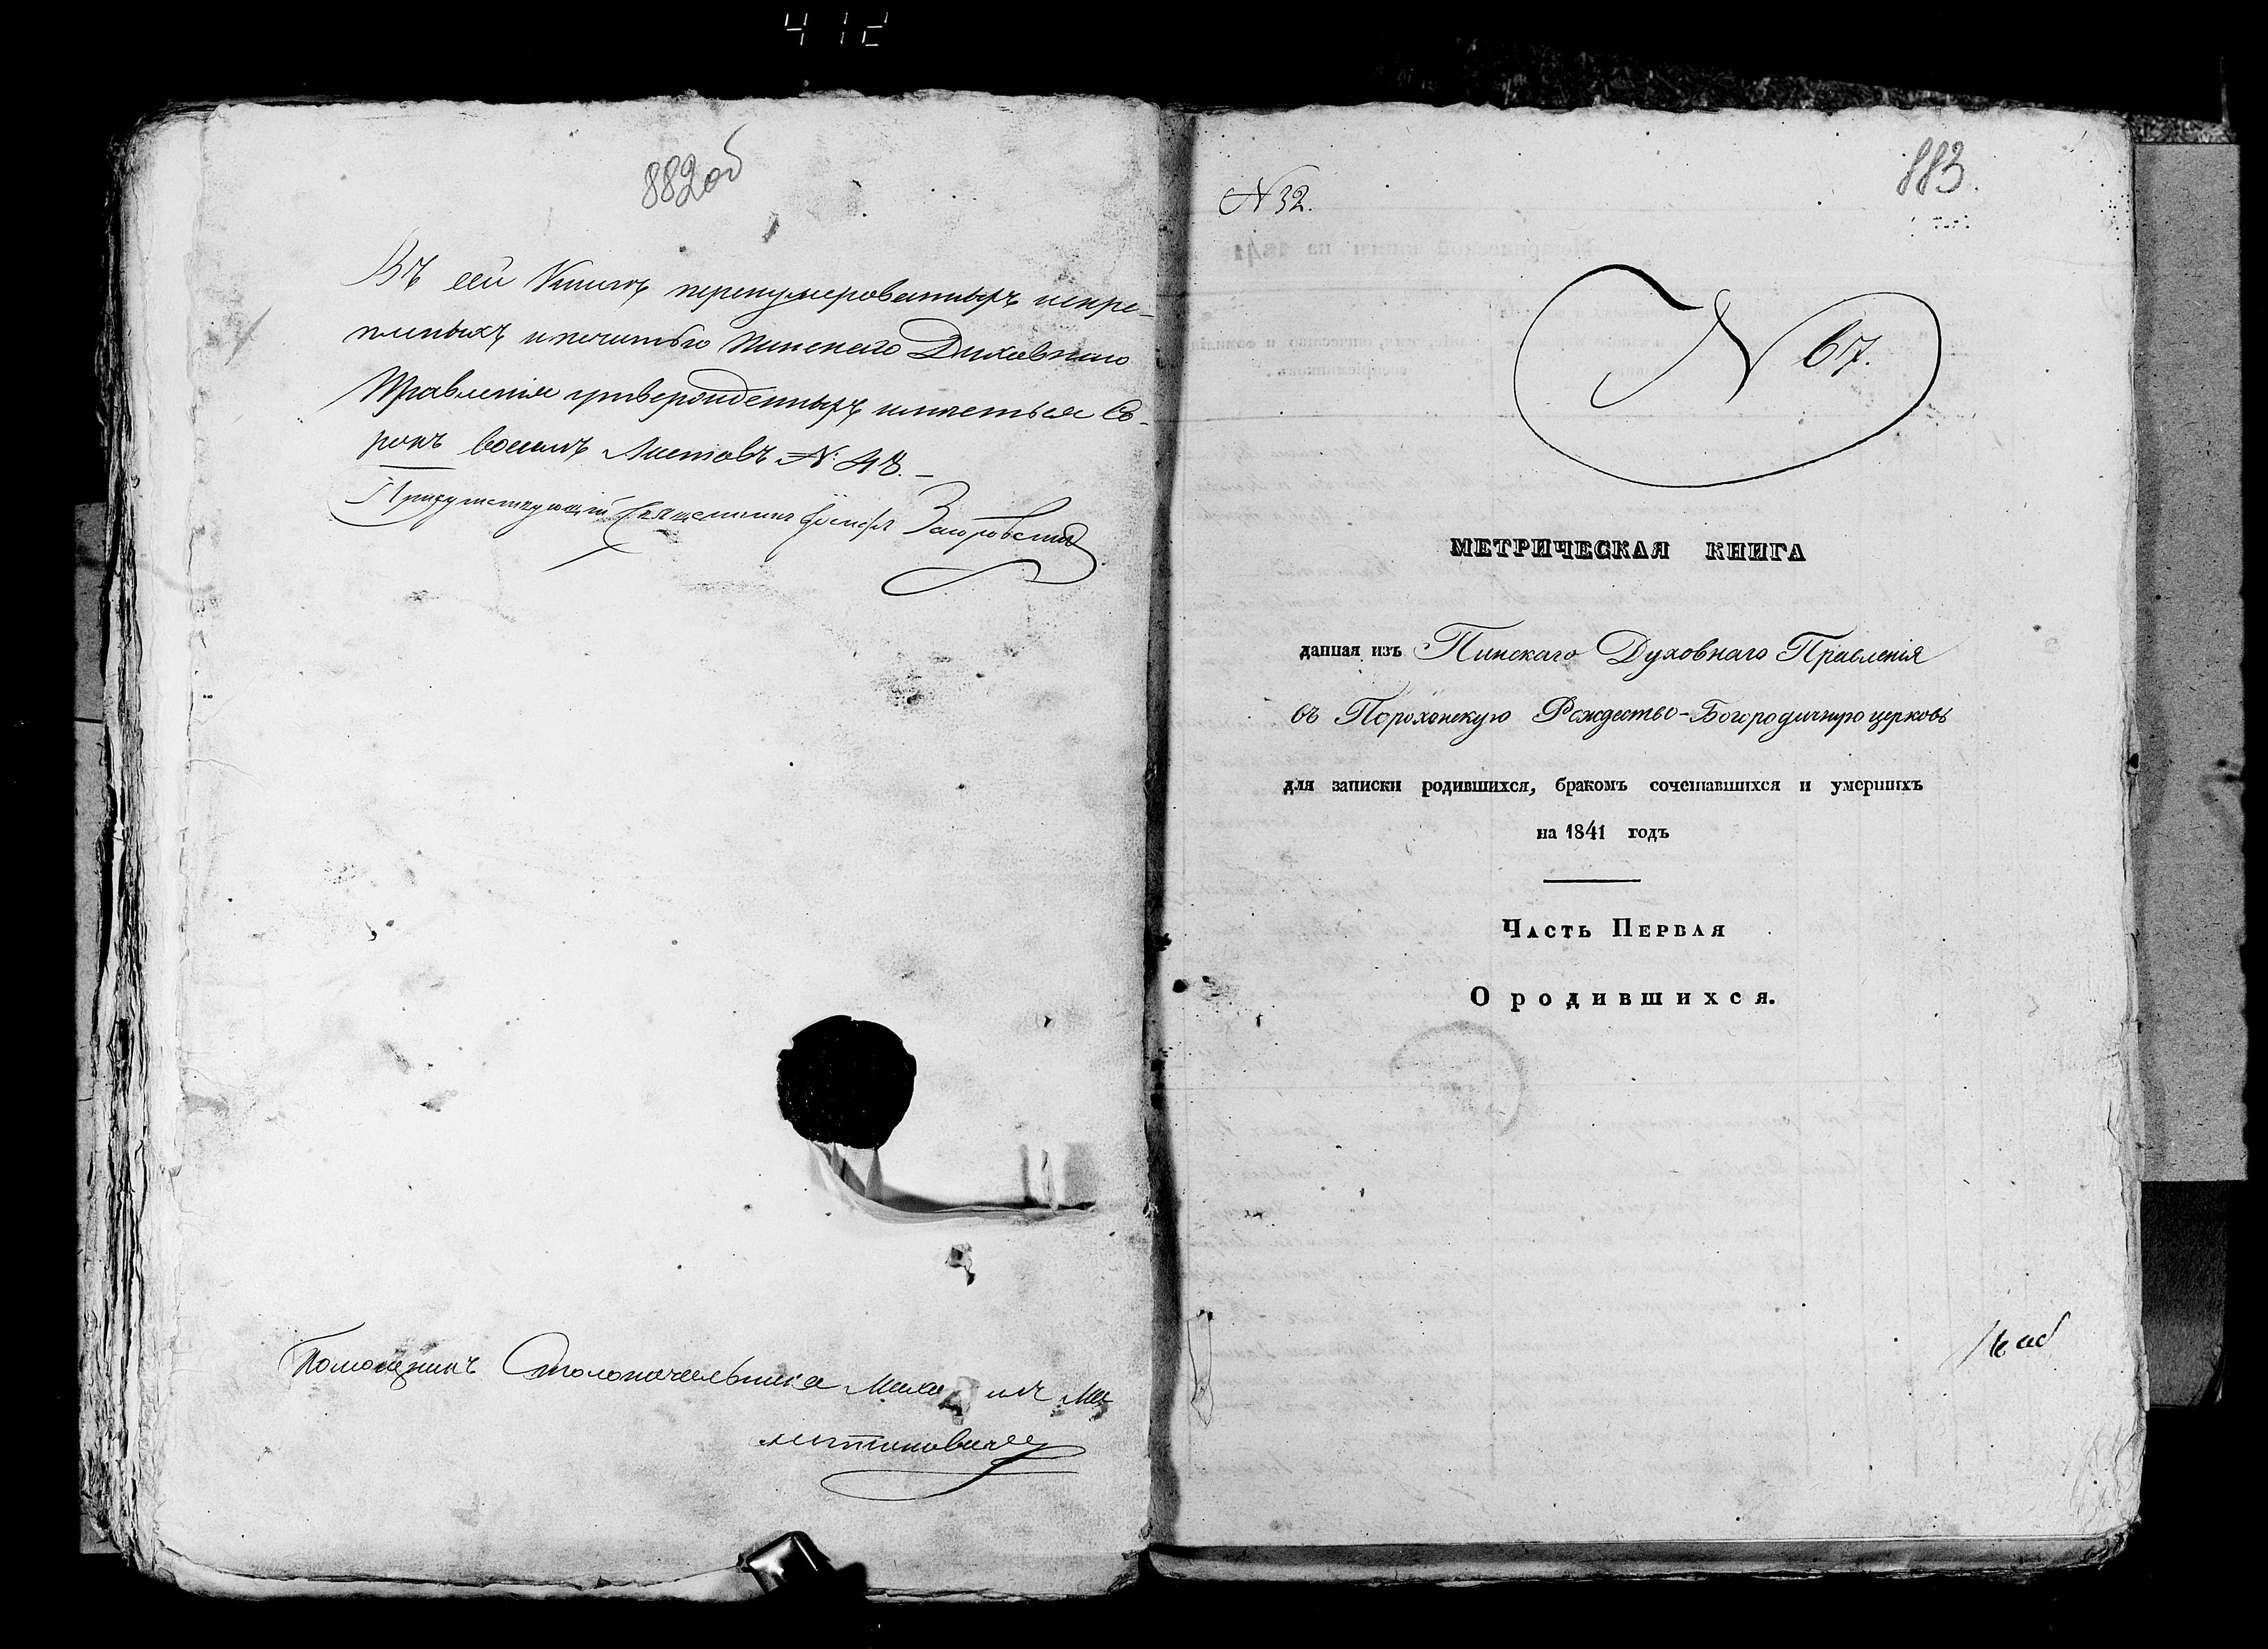 412
882об
Въ сей Книгѣ перенумерованныхъ искре-
пленыхъ ипечатью Пинскаго Духовнаго
Правленія утвержденныхъ имѣеться со-
рокъ восемъ Листовъ № 48.
Присутствующій Священникъ Іосифъ
Помощникъ Столоначельника
883.
N 32.
N 67.
МЕТРИЧЕСКАЯ КНИГА
данная изъ Пинскаго Духовнаго Правленія
въ Порохонскую Рождество-Богородичную церковь
для записки родившихся, бракомъ сочетавшихся и умершихъ
на 1841 годъ
Часть Первая
О родившихся.